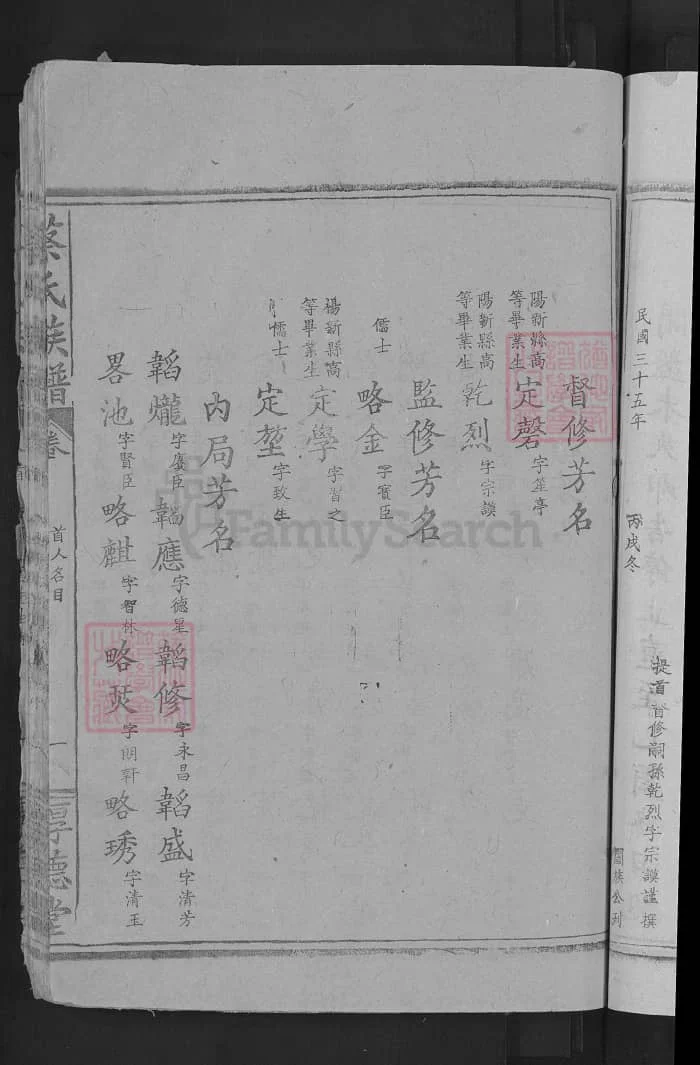 民國三十五年 丙戌冬
提首督修嗣孫乾烈字宗謨謹撰
闔族公刊
督修芳名
陽新縣高等畢業生 定磬 字笙亭
陽新縣高等畢業生 乾烈 字宗謨
監修芳名
儒士 略金 字寶臣
楊新縣高等畢業生 定學 字習之
儒士 定堃 字致生
內局芳名
韜爖 字賡臣 韜應 字德星 韜修 字永昌 韜盛 字清芳
畧池 字賢臣 略麒 字智林 略芡 字朗軒 略琇 字清玉
蔡氏族譜
卷
首人名目
一
享德堂
FamilySearch